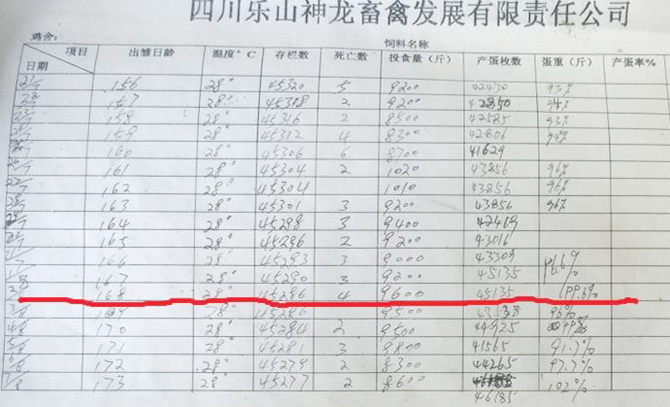 四川乐山神龙畜禽发展有限责任公司
鸡舍: 饲料名称
项目 日期 出雏日龄 温度°C 存栏数 死亡数 投食量（斤） 产蛋枚数 蛋重（斤） 产蛋率%
156 28° 45320 5 9200 42430 93%
157 28° 45318 2 9200 42850
158 28° 45316 2 8500 42585 93%
159 28° 45312 4 8300 42806
160 28° 45306 6 8700 41629
161 28° 45304 2 1020 43856 96%
162 28° 45304 1010 43856 96%
163 28° 45301 3 9200 43856 96%
164 28° 45298 3 9400 42469
165 28° 45296 2 9200 43016
166 28° 45293 3 9000 43309
167 28° 45290 3 9200 45135
168 28° 45286 4 9600 45135 99.6%
28° 45286 9500 96%
4/8 170 28° 45284 2 9500 44925
5/8 171 28° 45281 3 9800 41565 91.7%
6/8 172 28° 45279 2 8300 44265 97.7%
7/8 173 28° 45277 2 8600 102%
46185